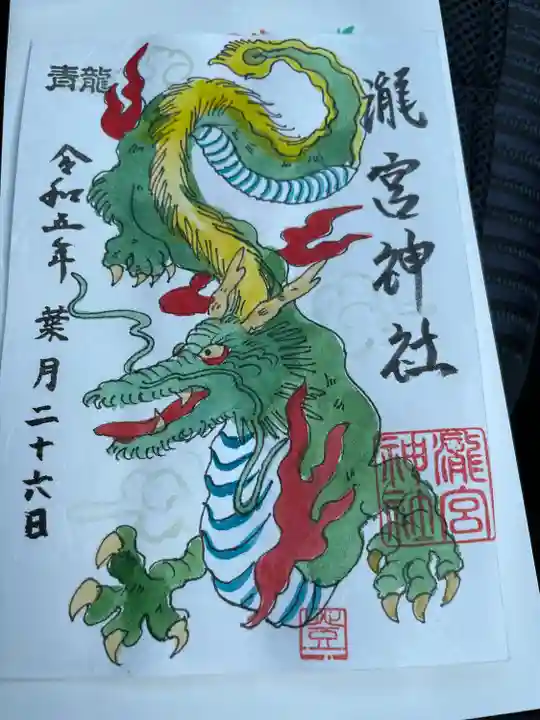 瀧宮神社
青龍
令和五年 葉月二十六日
瀧宮
神社